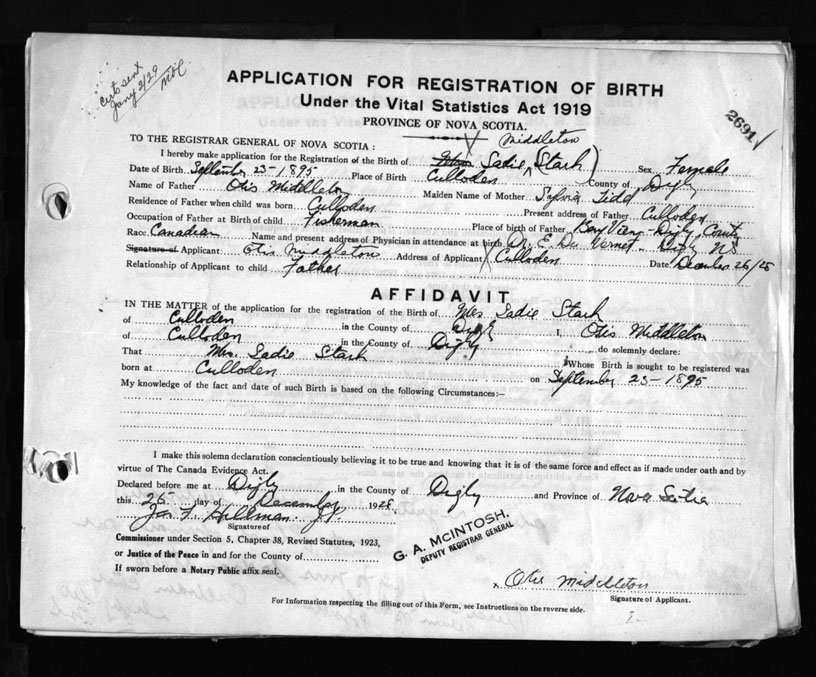 Certs sent
Jany 2/29
APPLICATION FOR REGISTRATION OF BIRTH
Under the Vital Statistics Act 1919
PROVINCE OF NOVA SCOTIA.
2691
TO THE REGISTRAR GENERAL OF NOVA SCOTIA :
Middleton
I hereby make application for the Registration of the Birth of Mrs. Sadie (Stark) Sex Female
Date of Birth September 25-1895 Place of Birth Culloden County of Digby
Name of Father Otis Middleton Maiden Name of Mother Sylvia Tidd
Residence of Father when child was born Culloden Present address of Father Culloden
Occupation of Father at Birth of child Fisherman Place of birth of Father Bay View - Digby County
Race Canadian Name and present address of Physician in attendance at birth Dr. E. Du Vernet - Digby NS
Signature of Applicant Otis Middleton Address of Applicant Culloden Date December 26/28
Relationship of Applicant to child Father
AFFIDAVIT
IN THE MATTER of the application for the registration of the Birth of Mrs Sadie Stark
of Culloden in the County of Digby I, Otis Middleton
of Culloden in the County of Digby do solemnly declare:
That Mrs. Sadie Stark Whose Birth is sought to be registered was
born at Culloden on September 25-1895
My knowledge of the fact and date of such Birth is based on the following Circumstances:—
I make this solemn declaration conscientiously believing it to be true and knowing that it is of the same force and effect as if made under oath and by
virtue of The Canada Evidence Act.
Declared before me at Digby in the County of Digby and Province of Nova Scotia
this 26 day of December 1928.
Signature of
Commissioner under Section 5, Chapter 38, Revised Statutes, 1923,
or Justice of the Peace in and for the County of
If sworn before a Notary Public affix seal.
G. A. McINTOSH,
DEPUTY REGISTRAR GENERAL
x Otis Middleton
Signature of Applicant.
For Information respecting the filling out of this Form, see Instructions on the reverse side.